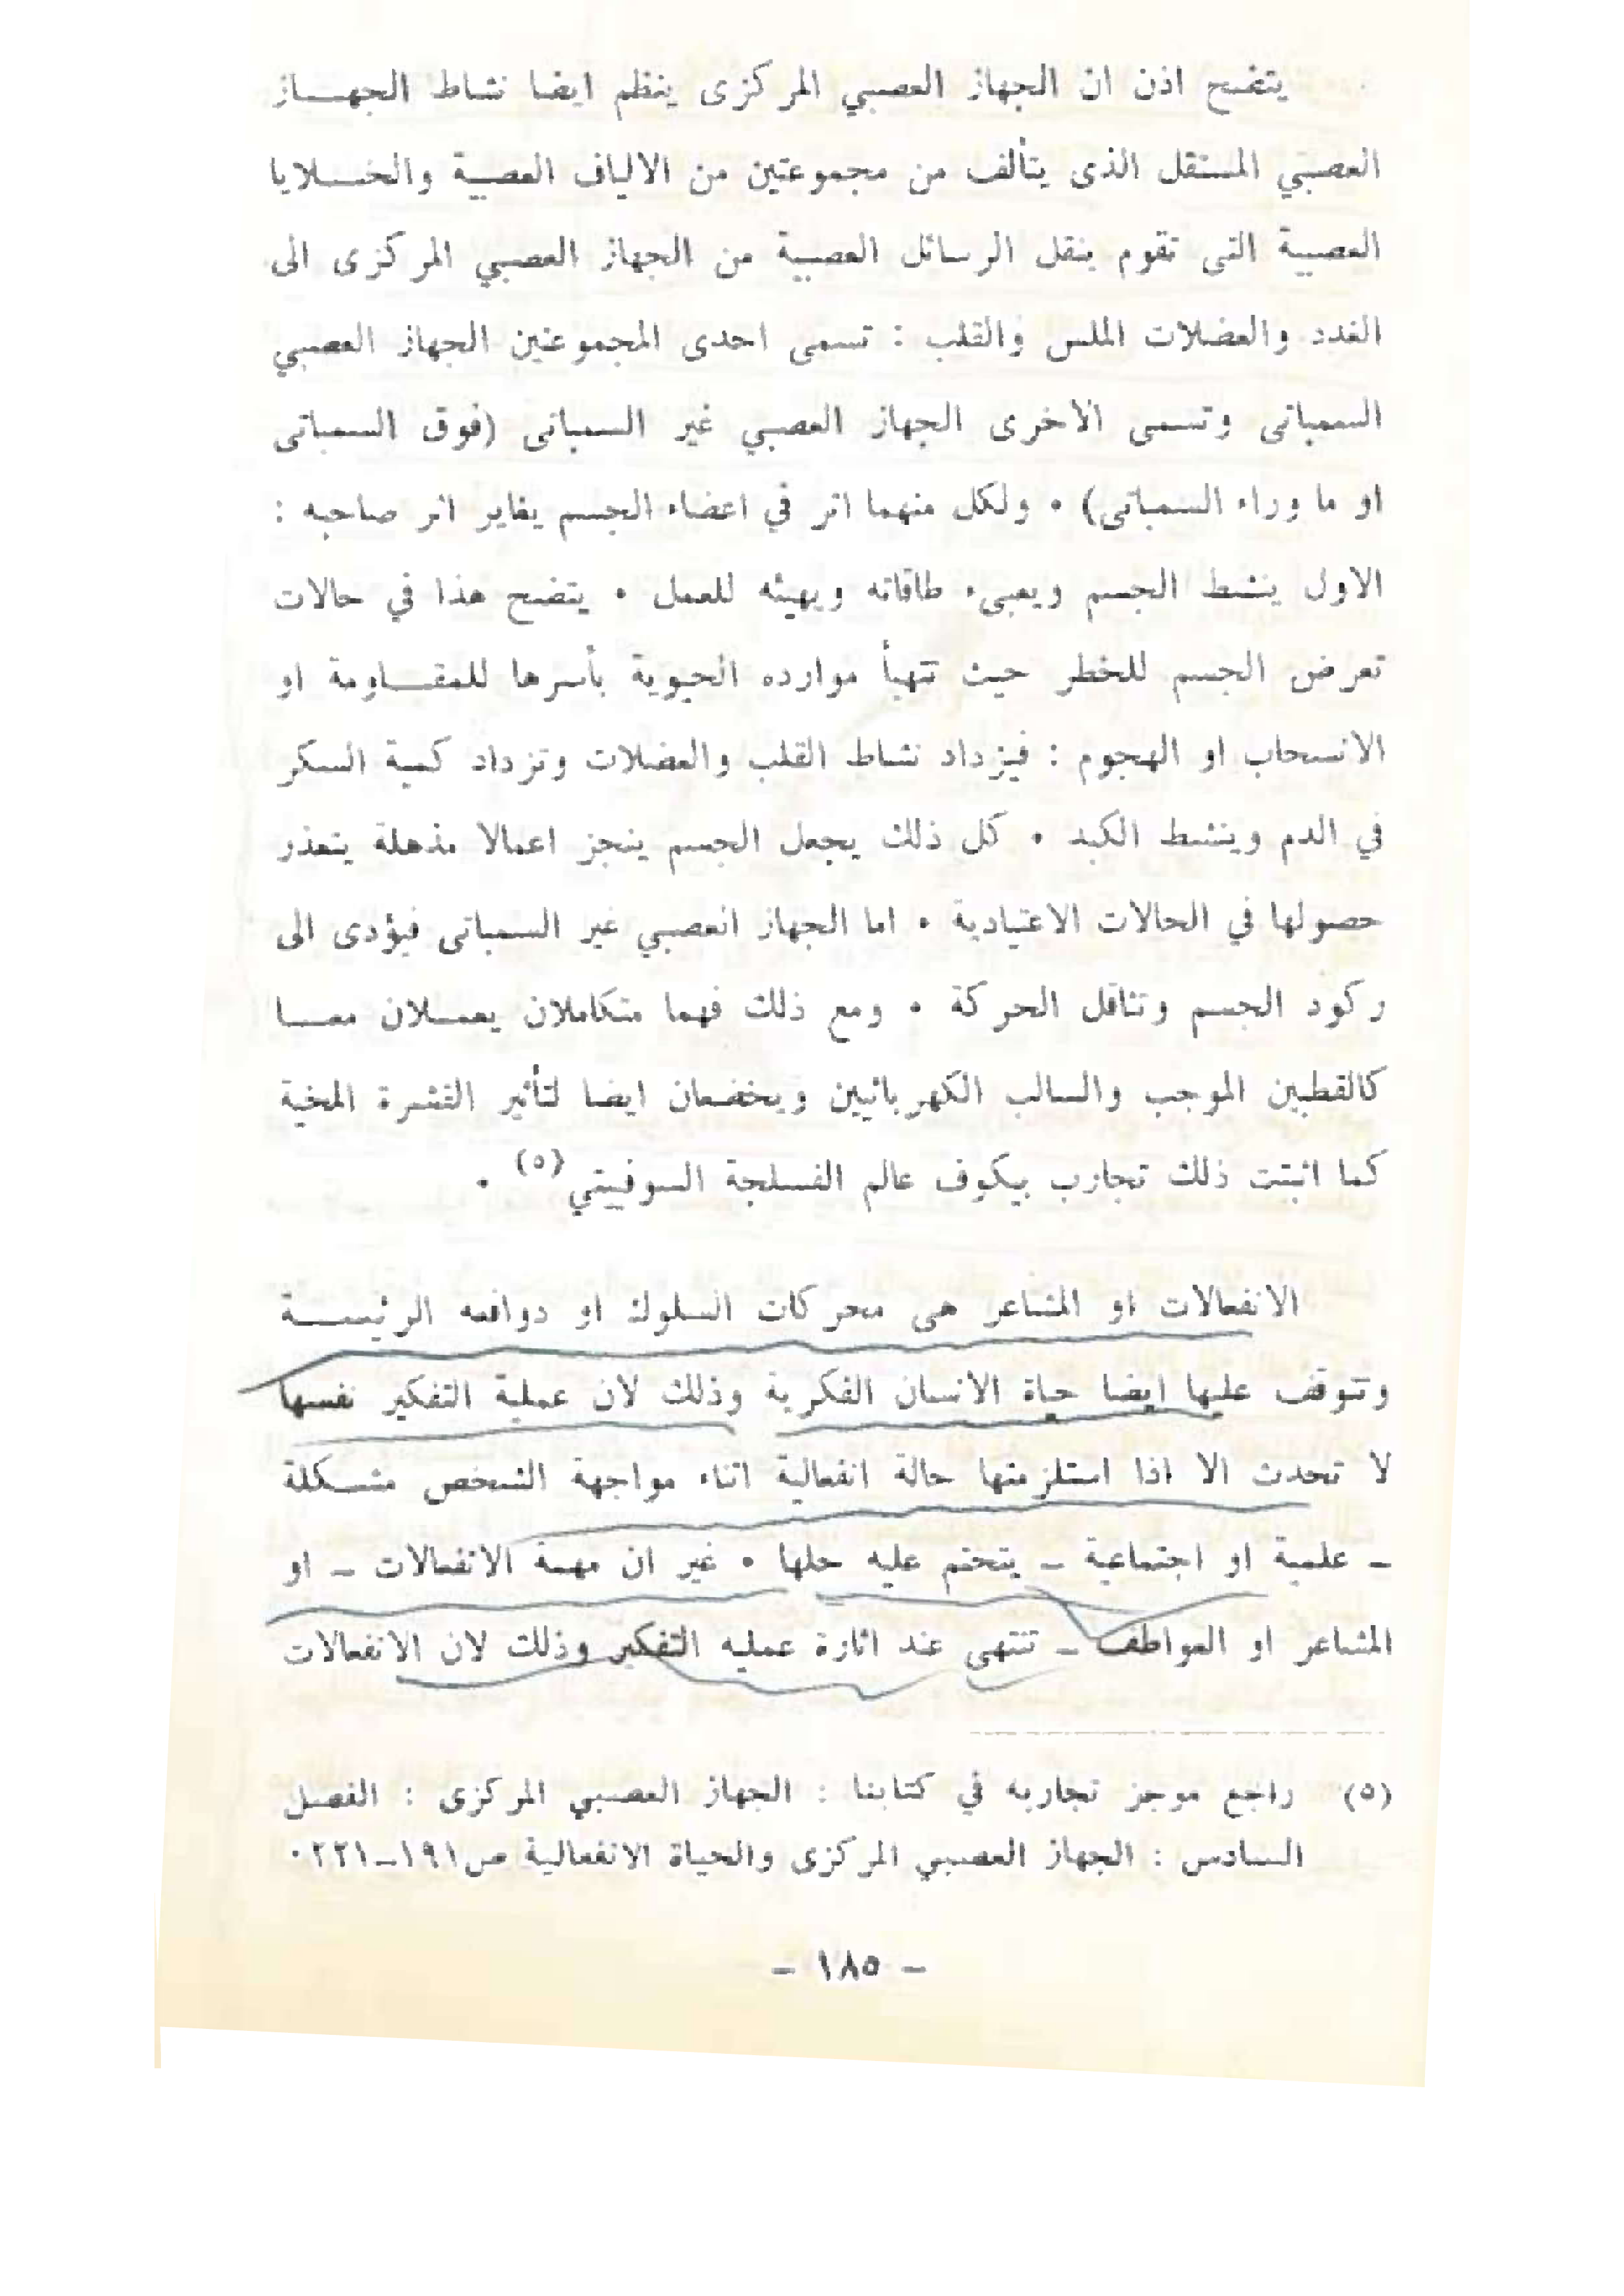 يتضح اذن ان الجهاز العصبي المركزى ينظم ايضا نشاط الجهــاز
العصبي المستقل الذى يتألف من مجموعتين من الالياف العصبية والخــلايا
العصبية التى تقوم بنقل الرسائل العصبية من الجهاز العصبي المركزى الى
الغدد والعضلات الملس والقلب : تسمى احدى المجموعتين الجهاز العصبي
السمباتى وتسمى الاخرى الجهاز العصبي غير السمباتى (فوق السمباتى
او ما وراء السمباتى) ٠ ولكل منهما اثر في اعضاء الجسم يغاير اثر صاحبه :
الاول ينشط الجسم ويعبىء طاقاته ويهيئه للعمل ٠ يتضح هذا في حالات
تعرض الجسم للخطر حيث تتهيأ موارده الحيوية بأسرها للمقــاومة او
الانسحاب او الهجوم : فيزداد نشاط القلب والعضلات وتزداد كمية السكر
في الدم وينشط الكبد ٠ كل ذلك يجعل الجسم ينجز اعمالا مذهلة يتعذر
حصولها في الحالات الاعتيادية ٠ اما الجهاز العصبي غير السمباتى فيؤدى الى
ركود الجسم وتثاقل الحركة ٠ ومع ذلك فهما متكاملان يعمــلان معــا
كالقطبين الموجب والسالب الكهربائيين ويخضعان ايضا لتأثير القشرة المخية
كما اثبتت ذلك تجارب بيكوف عالم الفسلجة السوفييتي(٥) ٠
الانفعالات او المشاعر هى محركات السلوك او دوافعه الرئيســة
وتتوقف عليها ايضا حياة الانسان الفكرية وذلك لان عملية التفكير نفسها
لا تحدث الا اذا استلزمتها حالة انفعالية اثناء مواجهة الشخص مشــكلة
ـ علمية او اجتماعية ـ يتحتم عليه حلها ٠ غير ان مهمة الانفعالات ـ او
المشاعر او العواطف ـ تنتهى عند اثارة عمليه التفكير وذلك لان الانفعالات
(٥) راجع موجز تجاربه في كتابنا : الجهاز العصبي المركزى : الفصل
السادس : الجهاز العصبي المركزى والحياة الانفعالية ص١٩١ـ٢٢١٠
ـ ١٨٥ ـ